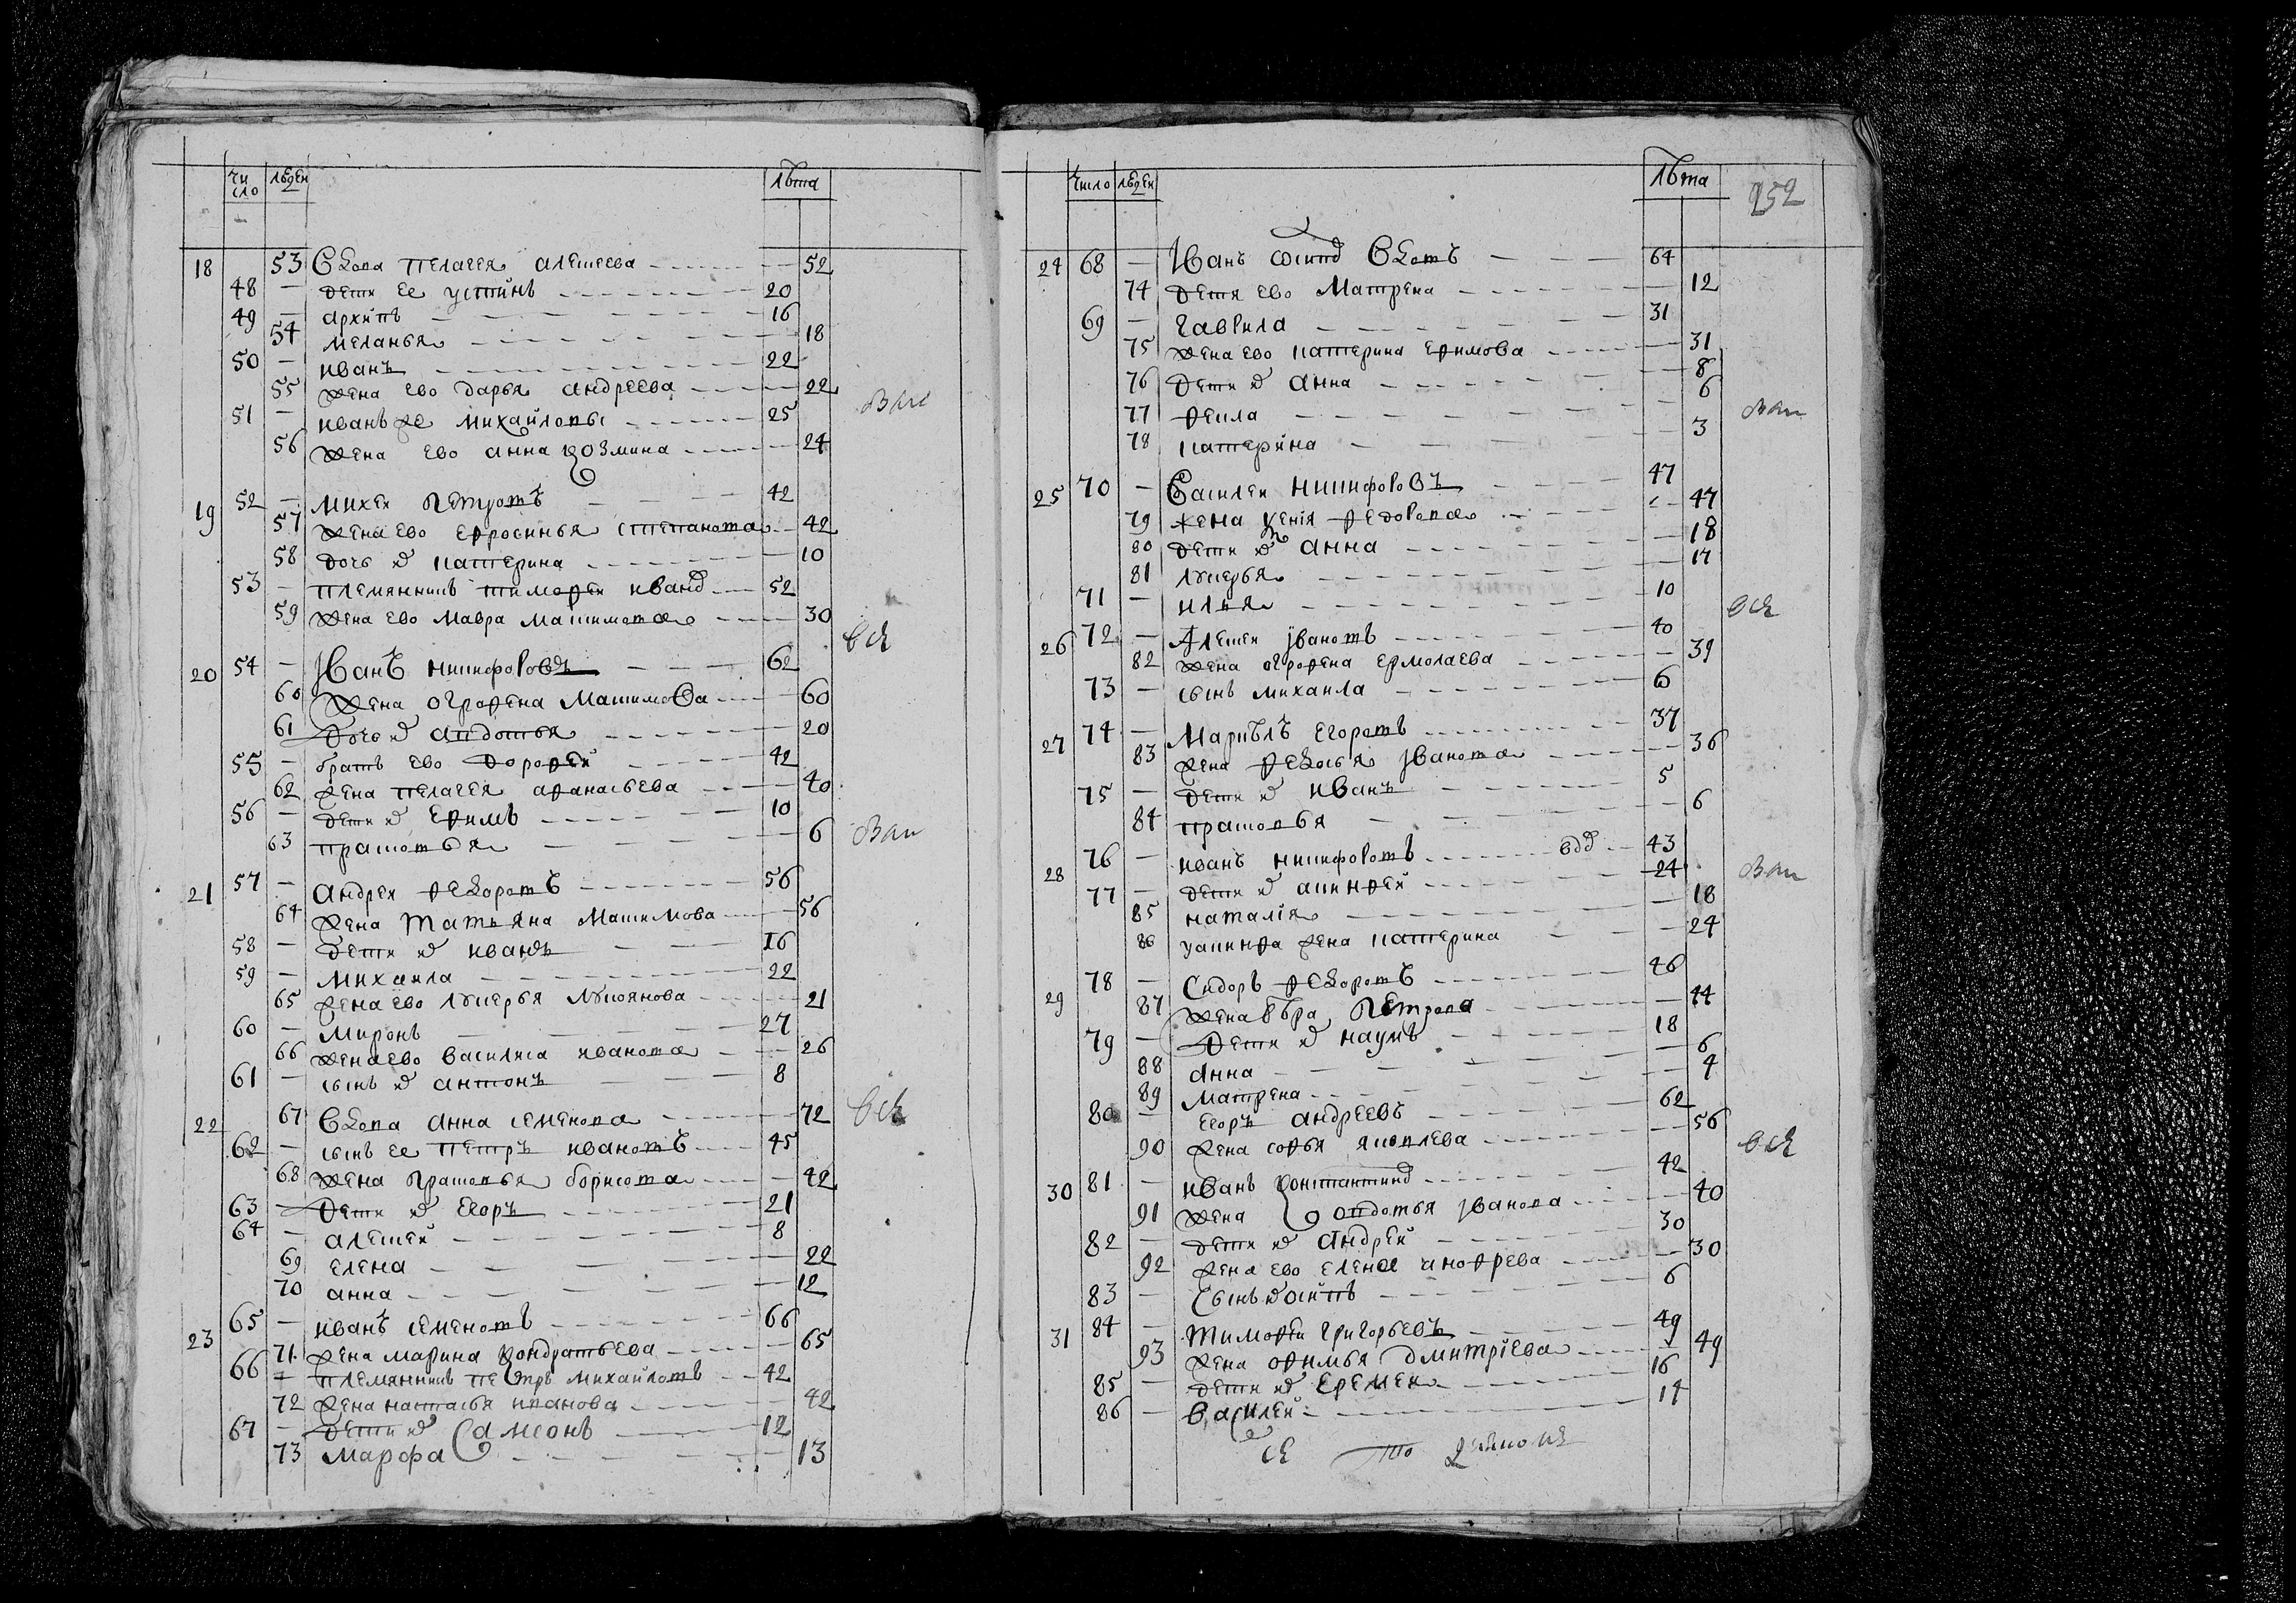 чи
сло людеи лѣта
18 53 Вдова пелагея алеѯеева 52
48 дети ее устинъ 20
49 архипъ 16
54 меланья 18
50 иванъ 22
55 жена ево дарья андреева 22
51 иванъ же михаиловы 25
56 жена ево анна козмина 24
19 52 михеи петровъ 42
57 жена ево ефросинья степанова 42
58 дочь катерина 10
53 племянникъ тимофеи иванов 52
59 жена ево мавра маѯимова 30
20 54 Иванъ никифоровъ 62
60 жена огрофена маѯимова 60
61 дочь авдотья 20
55 братъ ево дорофеи 42
62 жена пелагея афанасьева 40
56 дети ефимъ 10
63 прасковья 6
21 57 андреи федоровъ 56
64 жена татьяна маѯимова 56
58 дети иванъ 16
59 михаила 22
65 жена ево лукерья лукоянова 21
60 миронъ 27
66 жена ево василиса иванова 26
61 сынъ антонъ 8
22 67 Вдова анна семенова 72
62 сынъ ее петръ ивановъ 45
68 жена прасковья борисова 42
63 дети егоръ 21
64 алеѯеи 8
69 елена 22
70 анна 12
23 65 иванъ семеновъ 66
71 жена марина кондратьева 65
66 племянникъ петръ михаиловъ 42
72 жена настасья иванова 42
67 дети самсонъ 12
73 марфа 13
число людеи лѣта 252
24 68 Иванъ осипов вдовъ 64
74 детя ево матрена 12
69 гаврила 31
75 жена ево катерина ефимова 31
76 дети анна 8
77 фекла 6
78 катерина 3
25 70 Василеи никифоровъ 47
79 жена ксенія федорова 47
80 дети анна 18
81 лукерья 17
71 илья 10
26 72 Алеѯеи ивановъ 40
82 жена огрофена ермолаева 39
73 сынъ михаила 6
27 74 Маркѣлъ егоровъ 37
83 жена федосья иванова 36
75 дети иванъ 5
84 прасковья 6
28 76 иванъ никифоровъ вдов 43
77 дети акинфеи 24
85 наталія 18
86 у акинфа жена катерина 24
29 78 Сидоръ федоровъ 46
87 жена вѣра петрова 44
79 дети наумъ 18
88 анна 6
89 матрена 4
80 егоръ андреевъ 62
90 жена софья яковлева 56
30 81 иванъ константинов 42
91 жена овдотья иванова 40
82 дети андреи 30
92 жена ево елена анофрева 30
83 сынъ осипъ 6
31 84 тимофеи григорьевъ 49
93 жена офимья дмитріева 49
85 дети еремеи 16
86 василеи 14